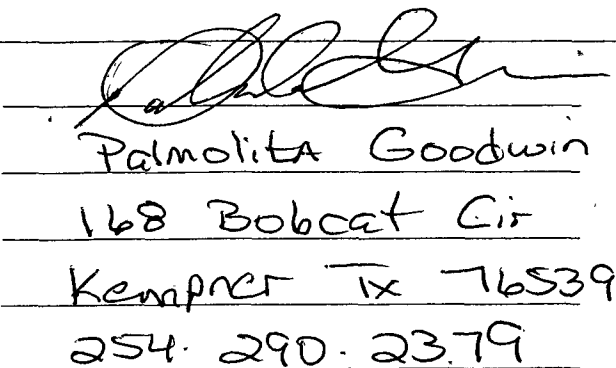 Palmolita Goodwin
168 Bobcat Cir
Kempner Tx 76539
254. 290. 2379